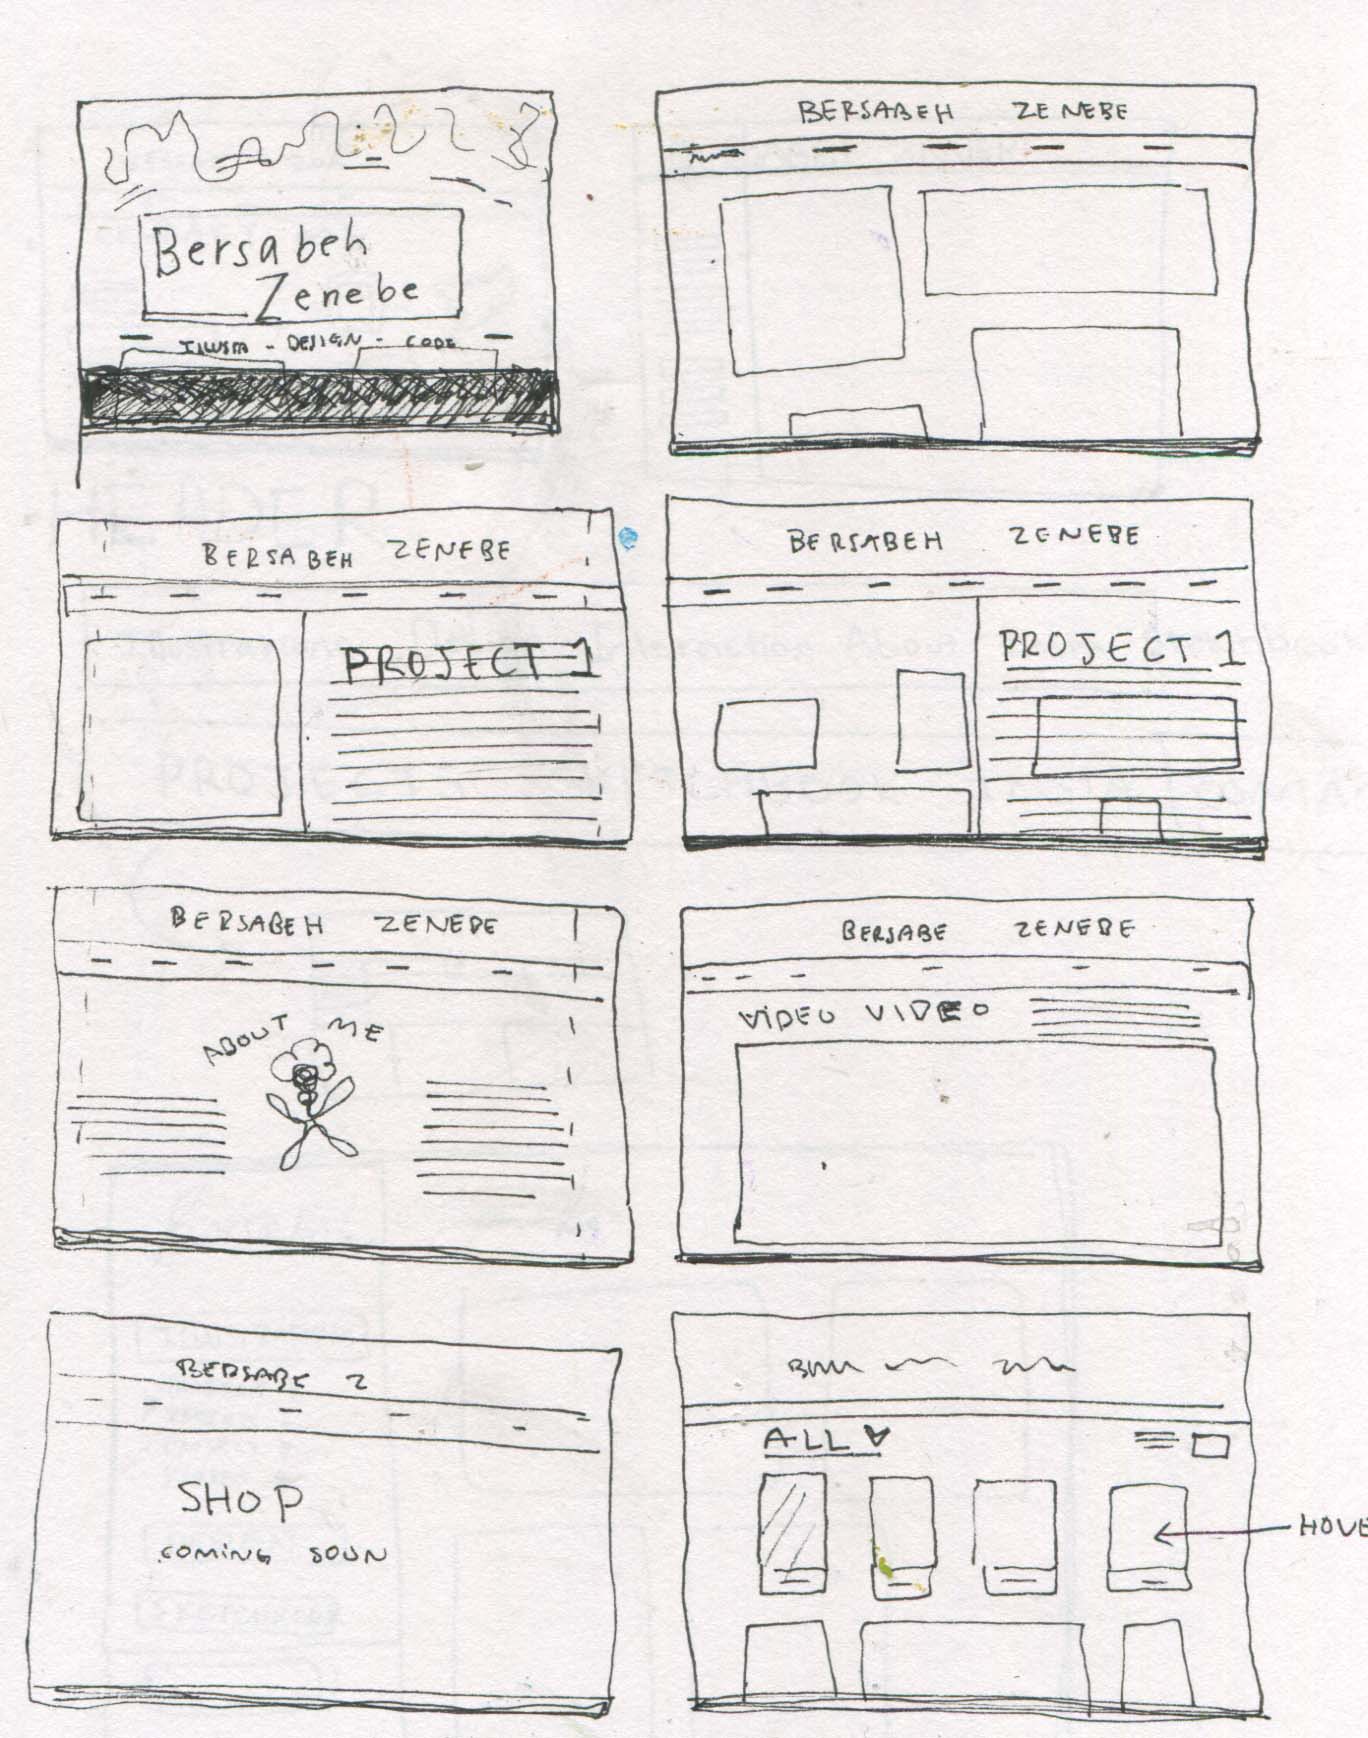 Bersabeh
Zenebe
ILLUSTR - DESIGN - CODE
BERSABEH ZENEBE
BERSABEH ZENEBE
PROJECT 1
BERSABEH ZENEBE
PROJECT 1
BERSABEH ZENEBE
ABOUT ME
BERSABE ZENEBE
VIDEO VIDEO
BERSABE Z
SHOP
COMING SOON
ALL
HOVE